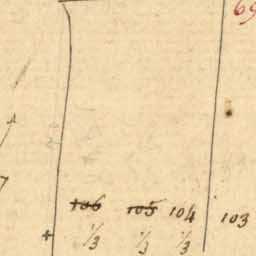 69
7
106 105 104 103
1/3 1/3 1/3